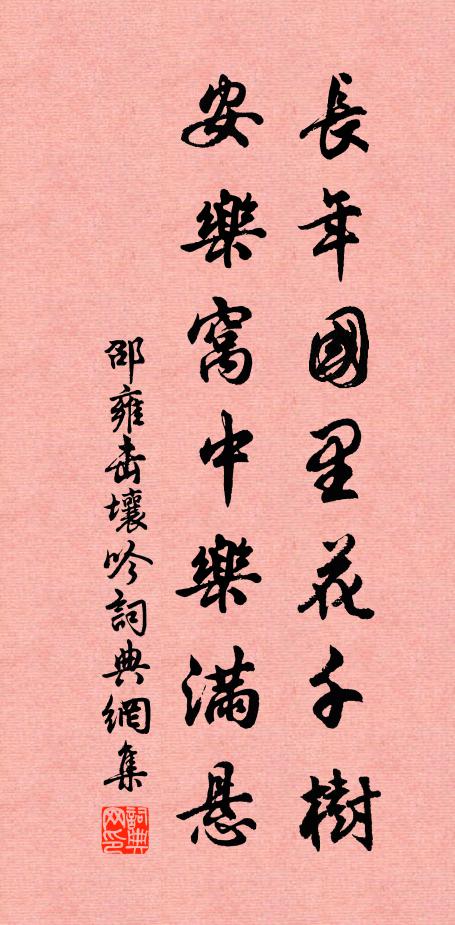 長年國里花千樹
安樂窩中樂滿悬
邵雍击壤吟詞典網集
詞典网印